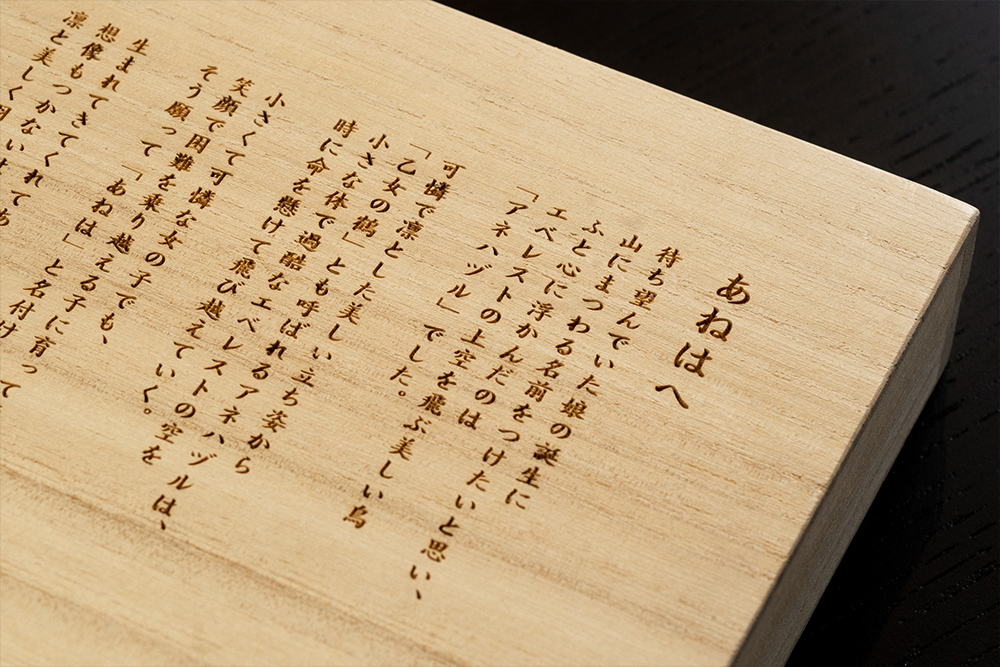 あねはへ
待ち望んでいた娘の誕生に
山にまつわる名前をつけたいと思い、
ふと心に浮かんだのは
エベレストの上空を飛ぶ美しい鳥
「アネハヅル」でした。
可憐で凛とした美しい立ち姿から
「乙女の鶴」とも呼ばれるアネハヅルは、
小さな体で過酷なエベレストの空を
時に命を懸けて飛び越えていく。
小さくて可憐な女の子でも、
笑顔で困難を乗り越える子に育って
そう願って「あねは」と名付け
生まれてきてくれてあ
想像もつかない
凛と美しく